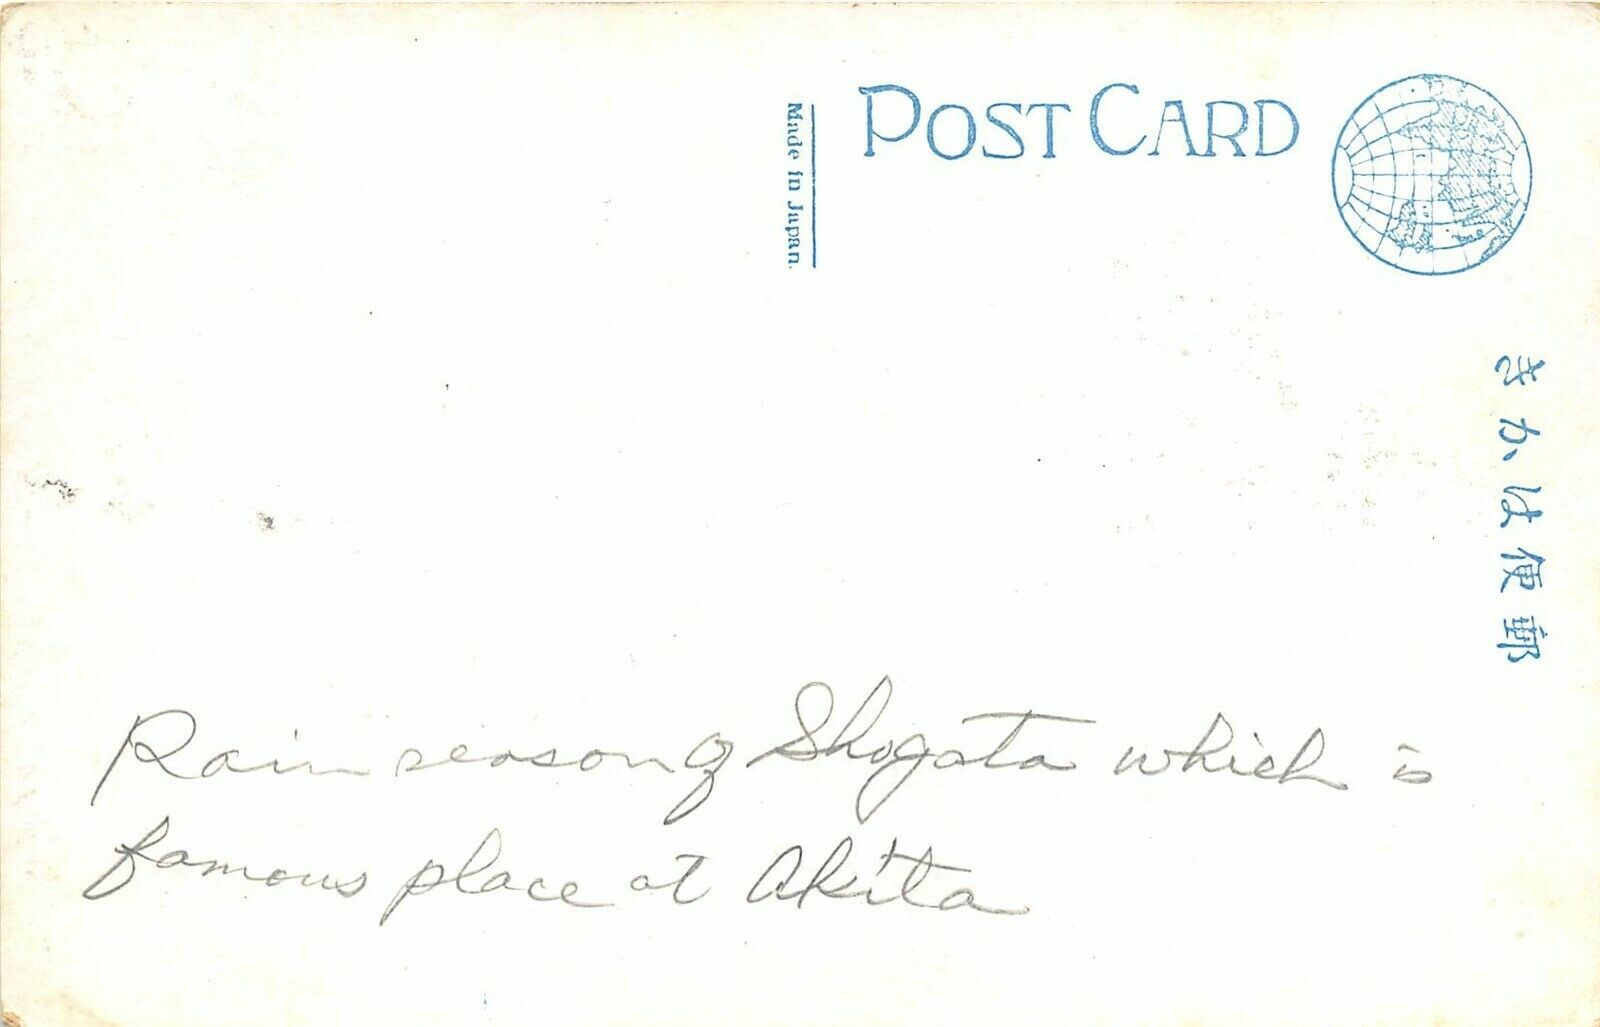 POST CARD
Made in Japan.
きかは便郵
Rain season of Shogata which is
famous place at Akita